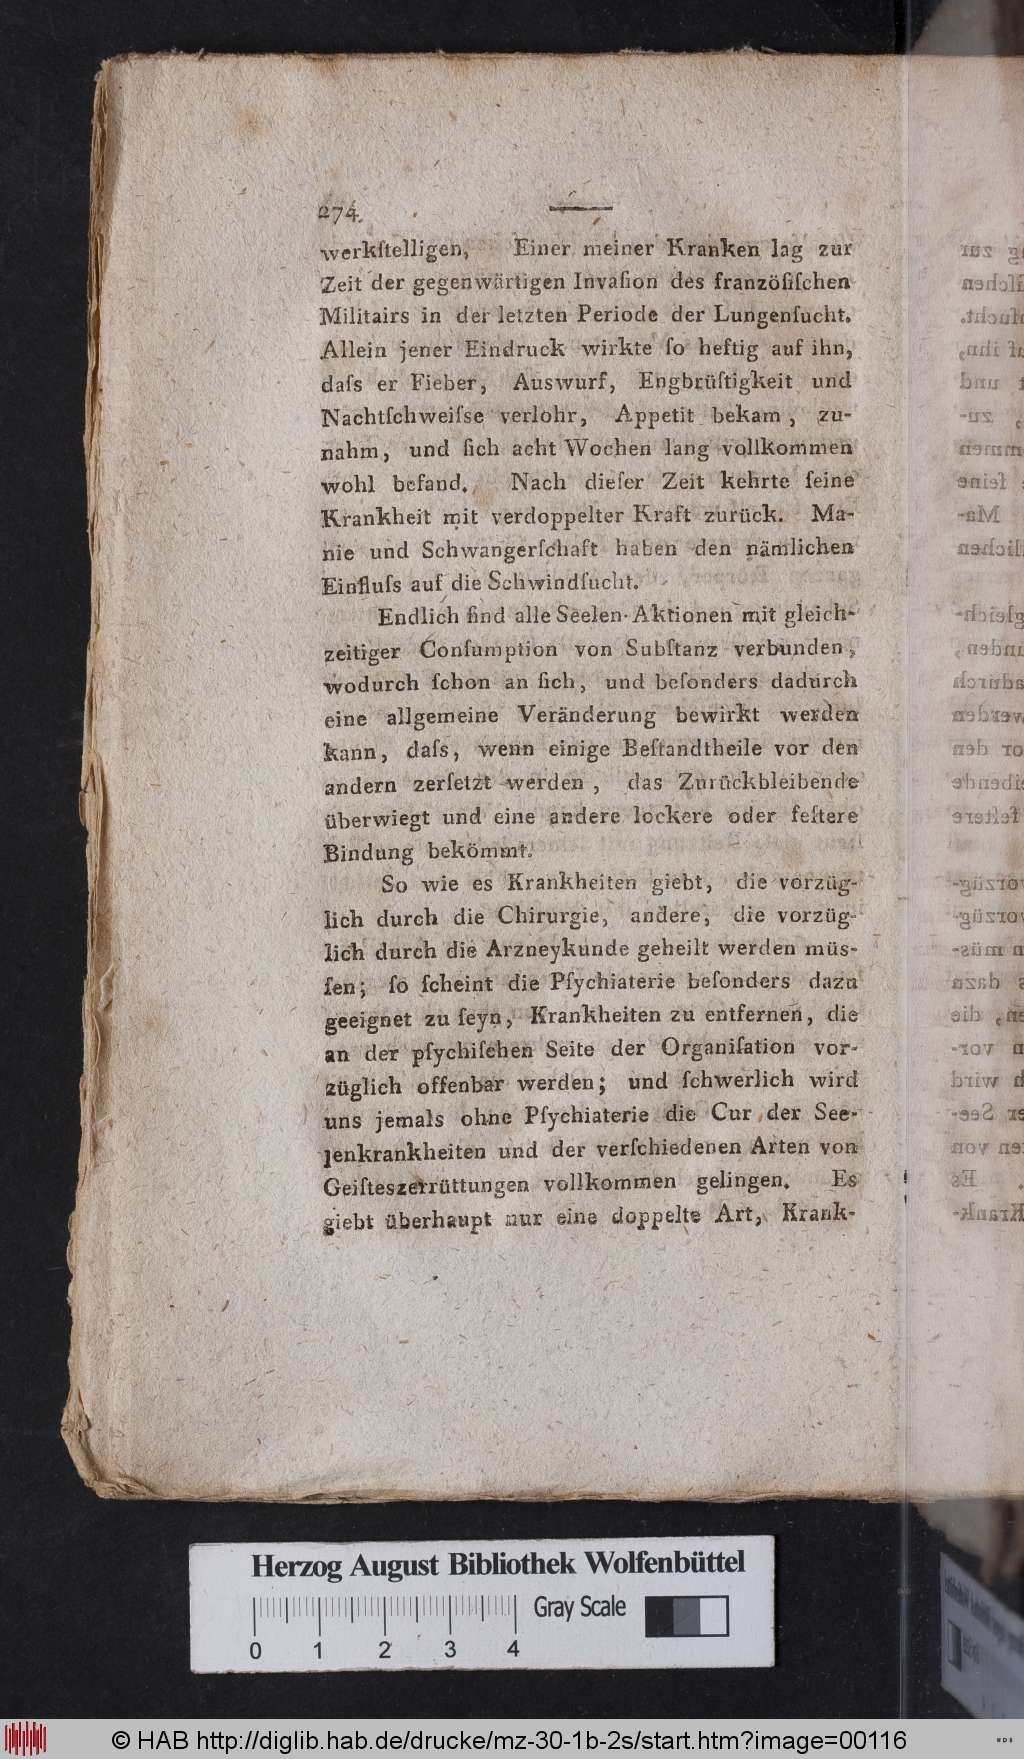 274
werkſtelligen, Einer meiner Kranken lag zur
Zeit der gegenwärtigen Invaſion des franzöſiſchen
Militairs in der letzten Periode der Lungenſucht.
Allein jener Eindruck wirkte ſo heftig auf ihn,
daſs er Fieber, Auswurf, Engbrüſtigkeit und
Nachtſchweiſse verlohr, Appetit bekam, zu-
nahm, und ſich acht Wochen lang vollkommen
wohl befand. Nach dieſer Zeit kehrte ſeine
Krankheit mit verdoppelter Kraft zurück. Ma-
nie und Schwangerſchaft haben den nämlichen
Einfluſs auf die Schwindſucht.
Endlich ſind alle Seelen-Aktionen mit gleich-
zeitiger Conſumption von Subſtanz verbunden,
wodurch ſchon an ſich, und beſonders dadurch
eine allgemeine Veränderung bewirkt werden
kann, daſs, wenn einige Beſtandtheile vor den
andern zerſetzt werden, das Zurückbleibende
überwiegt und eine andere lockere oder feſtere
Bindung bekömmt.
So wie es Krankheiten giebt, die vorzüg-
lich durch die Chirurgie, andere, die vorzüg-
lich durch die Arzneykunde geheilt werden müs-
ſen; ſo ſcheint die Pſychiaterie beſonders dazu
geeignet zu ſeyn, Krankheiten zu entfernen, die
an der pſychiſchen Seite der Organiſation vor-
züglich offenbar werden; und ſchwerlich wird
uns jemals ohne Pſychiaterie die Cur der See-
lenkrankheiten und der verſchiedenen Arten von
Geiſteszerrüttungen vollkommen gelingen. Es
giebt überhaupt nur eine doppelte Art, Krank-
Herzog August Bibliothek Wolfenbüttel
Gray Scale
0 1 2 3 4
© HAB http://diglib.hab.de/drucke/mz-30-1b-2s/start.htm?image=00116